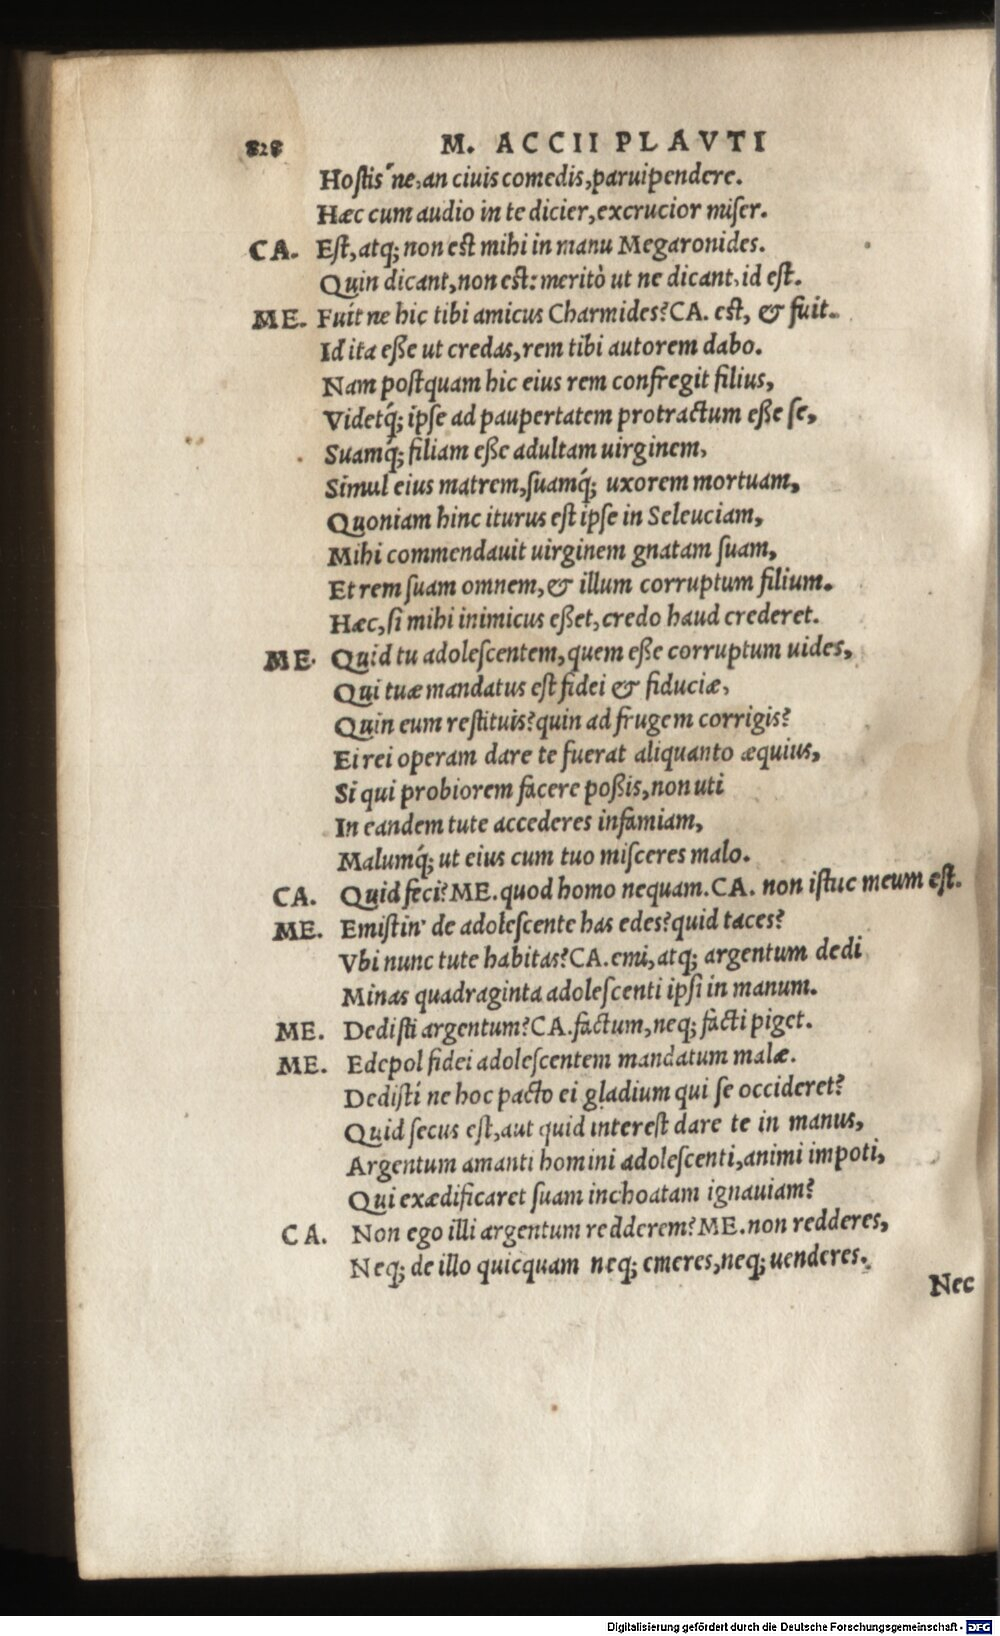 828 M. ACCII PLAVTI
Hostis'ne, an ciuis comedis, paruipendere.
Hæc cum audio in te dicier, excrucior miser.
CA. Est, atq; non est mihi in manu Megaronides.
Quin dicant, non est: meritò ut ne dicant, id est.
ME. Fuit ne hic tibi amicus Charmides? CA. est, & fuit.
Id ita eße ut credas, rem tibi autorem dabo.
Nam postquam hic eius rem confregit filius,
Videtq́; ipse ad paupertatem protractum eße se,
Suamq́; filiam eße adultam uirginem,
Simul eius matrem, suamq́; uxorem mortuam,
Quoniam hinc iturus est ipse in Seleuciam,
Mihi commendauit uirginem gnatam suam,
Et rem suam omnem, & illum corruptum filium.
Hæc, si mihi inimicus eßet, credo haud crederet.
ME. Quid tu adolescentem, quem eße corruptum uides,
Qui tuæ mandatus est fidei & fiduciæ,
Quin eum restituis? quin ad frugem corrigis?
Ei rei operam dare te fuerat aliquanto æquius,
Si qui probiorem facere poßis, non uti
In eandem tute accederes infamiam,
Malumq́; ut eius cum tuo misceres malo.
CA. Quid feci? ME. quod homo nequam. CA. non istuc meum est.
ME. Emistin' de adolescente has edes? quid taces?
Vbi nunc tute habitas? CA. emi, atq; argentum dedi
Minas quadraginta adolescenti ipsi in manum.
ME. Dedisti argentum? CA. factum, neq; facti piget.
ME. Edepol fidei adolescentem mandatum malæ.
Dedisti ne hoc pacto ei gladium qui se occideret?
Quid secus est, aut quid interest dare te in manus,
Argentum amanti homini adolescenti, animi impoti,
Qui exædificaret suam inchoatam ignauiam?
CA. Non ego illi argentum redderem? ME. non redderes,
Neq; de illo quicquam neq; emeres, neq; uenderes.
Nec
Digitalisierung gefördert durch die Deutsche Forschungsgemeinschaft - DFG